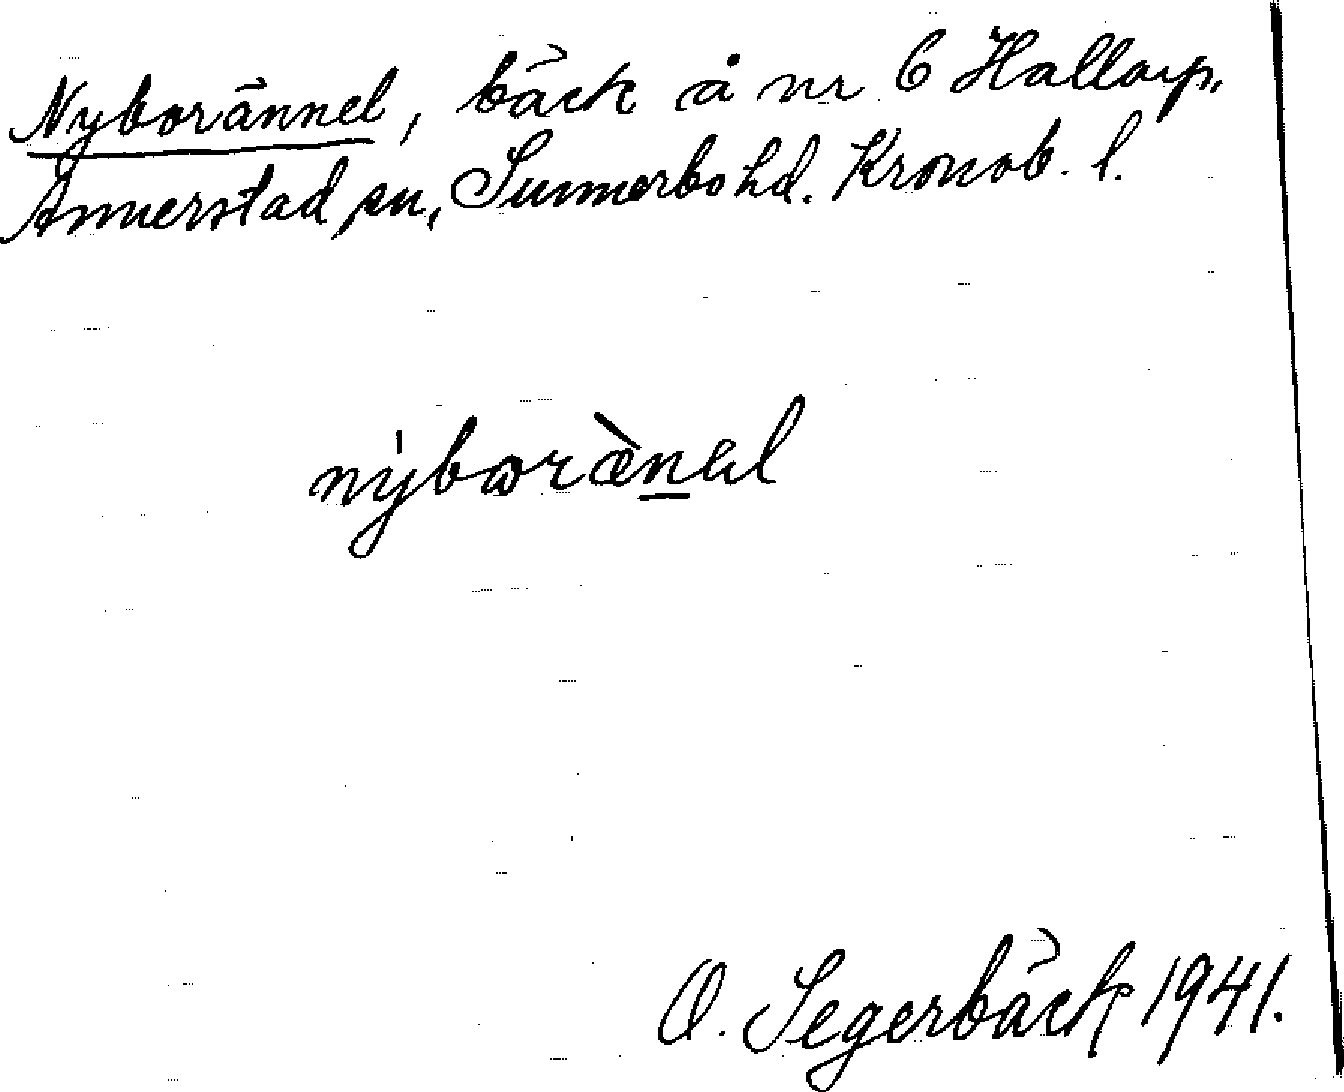 Nyborännel, bäck å nr 6 Hallarp,
Annerstad sn, Sunnerbo hd. Kronob. l.
nýboræ̀nəl
O. Segerbäck 1941.